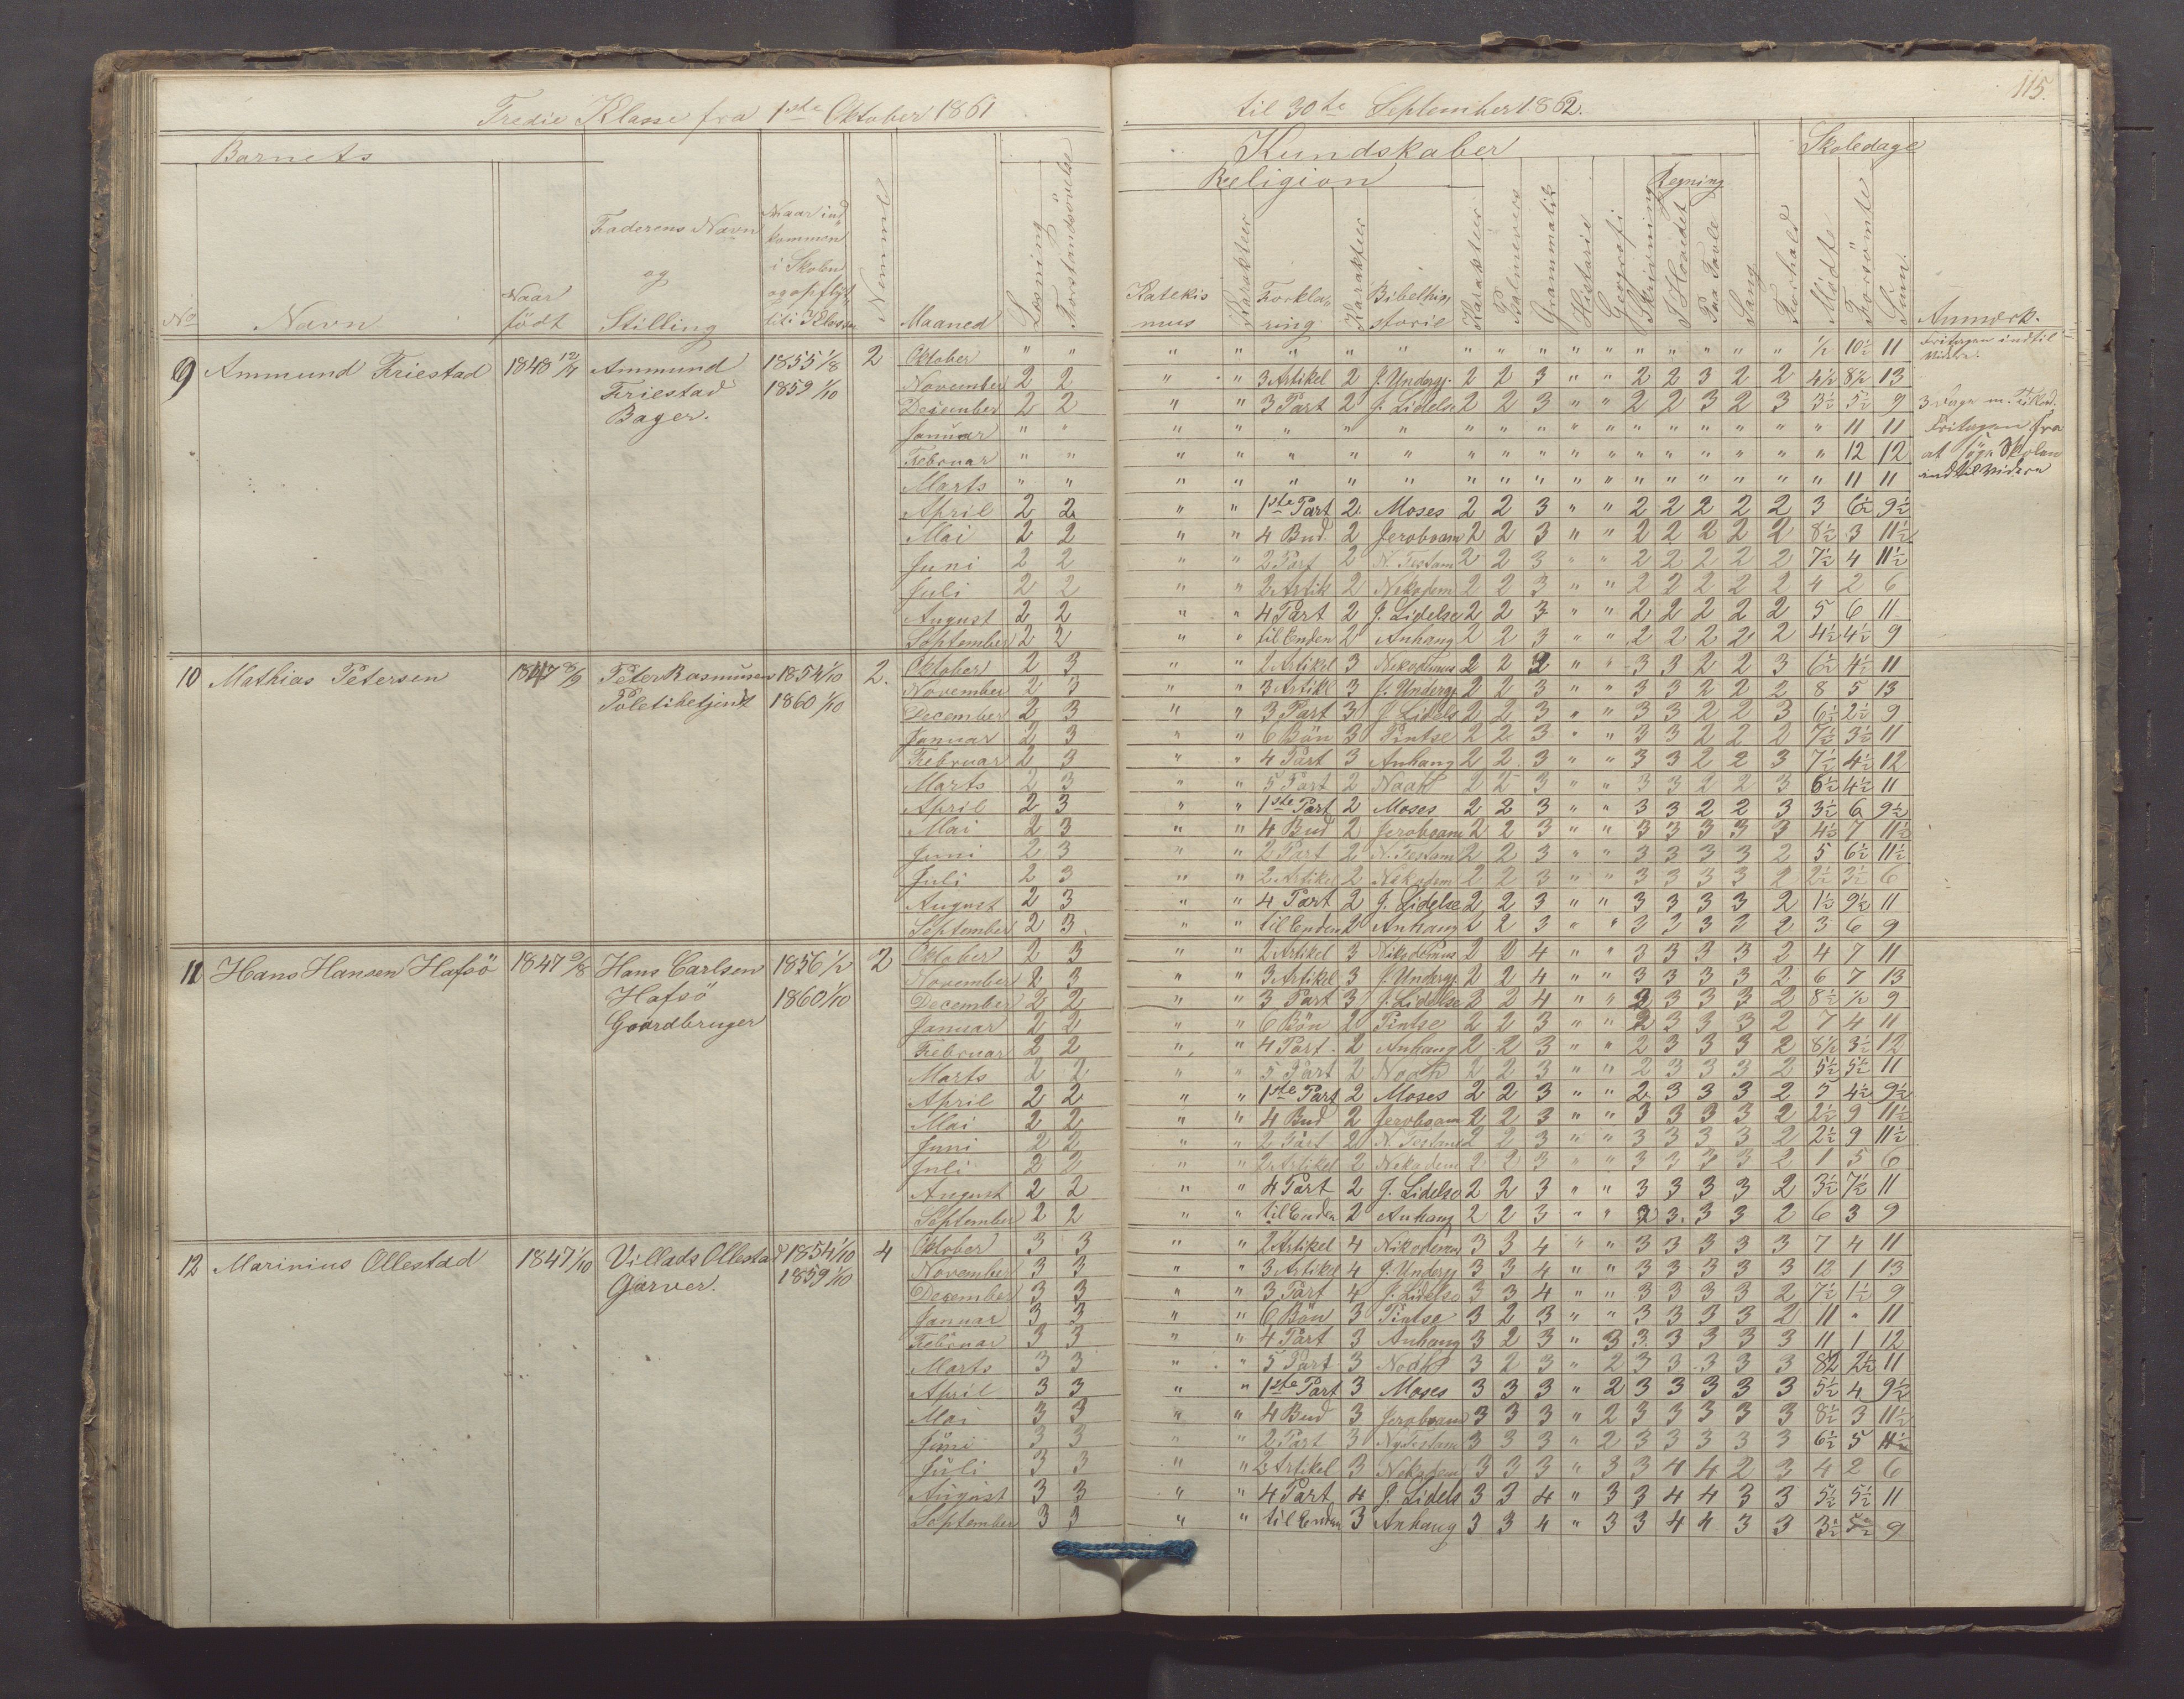 115.
Tredie Klasse fra 1ste Oktober 1861 til 30te September 1862.
Barnets
Kundskaber
Skoledage
Religion
Regning
No
Navn
Naar födt
Faderens Navn og Stilling
Naar ind kommen i Skolen og opflyt til 3 Klasse
Nemme
Maaned
Læsning
Forstandsövelse
Katekismus
Karakteer
Forklaring
Karakteer
Bibelhistorie
Karakteer
Psalmevers
Grammatik
Historie
Geografi
Skrivning
I Hovedet
Paa Tavle
Sang
Forhold
Mödte
Forsömte
Sum.
Anmærk.
9 Ammund Friestad 1848 12/4 Ammund Friestad Bager. 1855 1/8 1859 1/10 2
Oktober " " " " " " " " " " " " " " " " " " 1/2 10 1/2 11 Fritagen indtil Videre.
November 2 2 " " 3 Artikel 2 J. Undergj. 2 2 3 " " 2 2 3 2 2 4 1/2 8 1/2 13
December 2 2 " " 3 Part 2 J. Lidelse 2 2 3 " " 2 2 3 2 3 3 1/2 5 1/2 9
Januar " " " " " " " " " " " " " " " " " " " 11 11 Fritagen fra
Februar " " " " " " " " " " " " " " " " " " " 12 12 at søge Skolen
Marts " " " " " " " " " " " " " " " " " " " 11 11 indtil Videre
April 2 2 " " 1ste Part 2 Moses 2 2 3 " " 2 2 2 2 2 3 6 1/2 9 1/2
Mai 2 2 " " 4 Bud 2 Jeroboam 2 2 3 " " 2 2 2 2 2 8 1/2 3 11 1/2
Juni 2 2 " " 2 Part 2 N. Testam 2 2 3 " " 2 2 2 2 2 7 1/2 4 11 1/2
Juli 2 2 " " 2 Artik 2 Nekodem 2 2 3 " " 2 2 2 2 2 4 2 6
August 2 2 " " 4 Part 2 J. Lidelse 2 2 3 " " 2 2 2 2 2 5 6 11
September 2 2 " " til Enden 2 Anhang 2 2 3 " " 2 2 2 2 2 4 1/2 4 1/2 9
10 Mathias Petersen 1847 8/9 Peter Rasmusen Politibetjent 1854 1/10 1860 1/10 2.
Oktober 2 3 " " 2 Artikel 3 Nekodemus 2 2 2 " " 3 3 2 2 3 6 1/2 4 1/2 11
November 2 3 " " 3 Artikl 3 J. Undergj. 2 2 3 " " 3 3 2 2 2 8 5 13
December 2 3 " " 3 Part 3 J. Lidels 2 2 3 " " 3 3 2 2 3 6 1/2 2 1/2 9
Januar 2 3 " " 6 Bön 3 Pintse 2 2 3 " " 3 3 2 2 2 7 1/2 3 1/2 11
Februar 2 3 " " 4 Part 3 Anhang 2 2 3 " " 3 3 2 2 3 7 1/2 4 1/2 12
Marts 2 3 " " 5 Part 2 Noah 2 2 3 " " 3 3 2 2 3 6 1/2 4 1/2 11
April 2 3 " " 1ste Part 2 Moses 2 2 3 " " 3 3 2 2 3 3 1/2 6 9 1/2
Mai 2 3 " " 4 Bud 2 Jeroboam 2 2 3 " " 3 3 3 3 3 4 1/2 7 11 1/2
Juni 2 3 " " 2 Part 2 N. Testam 2 2 3 " " 3 3 3 3 2 5 6 1/2 11 1/2
Juli 2 3 " " 2 Artikel 2 Nekodem 2 2 3 " " 3 3 3 3 2 2 1/2 3 1/2 6
August 2 3 " " 4 Part 2 J. Lidelse 2 2 3 " " 3 3 3 3 2 1 1/2 9 1/2 11
September 2 3 " " til Enden 2 Anhang 2 2 3 " " 3 3 3 3 2 3 6 9
11 Hans Hansen Hafsö 1847 9/8 Hans Carlsen Hafsö Gaardbruger 1856 1/2 1860 1/10 2
Oktober 2 3 " " 2 Artikel 3 Nikodemus 2 2 4 " " 3 3 3 3 2 4 7 11
November 2 3 " " 3 Artikel 3 J. Undergj. 2 2 4 " " 3 3 3 3 2 6 7 13
December 2 2 " " 3 Part 3 J. Lidelse 2 2 4 " " 2 3 3 3 2 8 1/2 1/2 9
Januar 2 2 " " 6 Bön 2 Pintse 2 2 3 " " 2 3 3 3 2 7 4 11
Februar 2 2 " " 4 Part 2 Anhang 2 2 3 " " 2 3 3 3 2 8 1/2 3 1/2 12
Marts 2 2 " " 5 Part 2 Noah 2 2 3 " " 2 3 3 3 2 5 1/2 5 1/2 11
April 2 2 " " 1ste Part 2 Moses 2 2 3 " " 2 3 3 3 2 5 4 1/2 9 1/2
Mai 2 2 " " 4 Bud 2 Jeroboam 2 2 3 " " 3 3 3 3 2 2 1/2 9 11 1/2
Juni 2 2 " " 2 Part 2 N. Testam 2 2 3 " " 3 3 3 3 2 2 1/2 9 11 1/2
Juli 2 2 " " 2 Artikel 2 Nekodem 2 2 3 " " 3 3 3 3 2 1 5 6
August 2 2 " " 4 Part 2 J. Lidelse 2 2 3 " " 3 3 3 3 2 3 1/2 7 1/2 11
September 2 2 " " til Enden 2 Anhang 2 2 3 " " 2 3 3 3 2 6 3 9
12 Marinius Ollestad 1847 1/10 Villads Ollestad Garver. 1854 1/10 1859 1/10 4
Oktober 3 3 " " 2 Artikel 4 Nikodemus 3 3 4 " " 3 3 3 3 3 7 4 11
November 3 3 " " 3 Artikel 4 J. Undergj 3 3 4 " " 3 3 3 3 3 12 1 13
December 3 3 " " 3 Part 4 J. Lidelse 3 3 4 " " 3 3 3 3 2 7 1/2 1 1/2 9
Januar 3 3 " " 6 Bön 3 Pintse 3 2 3 " " 3 3 3 3 2 11 " 11
Februar 3 3 " " 4 Part 3 Anhang 3 2 3 " 3 3 3 3 3 3 11 1 12
Marts 3 3 " " 5 Part 3 Noah 3 2 3 " 2 3 3 3 3 3 8 1/2 2 1/2 11
April 3 3 " " 1ste Part 3 Moses 3 3 3 " 2 3 3 3 3 3 5 1/2 4 9 1/2
Mai 3 3 " " 4 Bud 3 Jeroboam 3 3 3 " 2 3 3 3 3 3 8 1/2 3 11 1/2
Juni 3 3 " " 2 Part 3 Ny Testam 3 3 3 " 2 3 3 3 3 3 6 1/2 5 11 1/2
Juli 3 3 " " 2 Artikel 3 Nekodem 3 3 3 " 3 3 4 4 2 3 4 2 6
August 3 3 " " 4 Part 4 J. Lidels 3 3 4 " 3 3 4 4 3 3 5 1/2 5 1/2 11
September 3 3 " " til Enden 3 Anhang 3 3 4 " 3 3 4 4 3 3 3 1/2 5 1/2 9